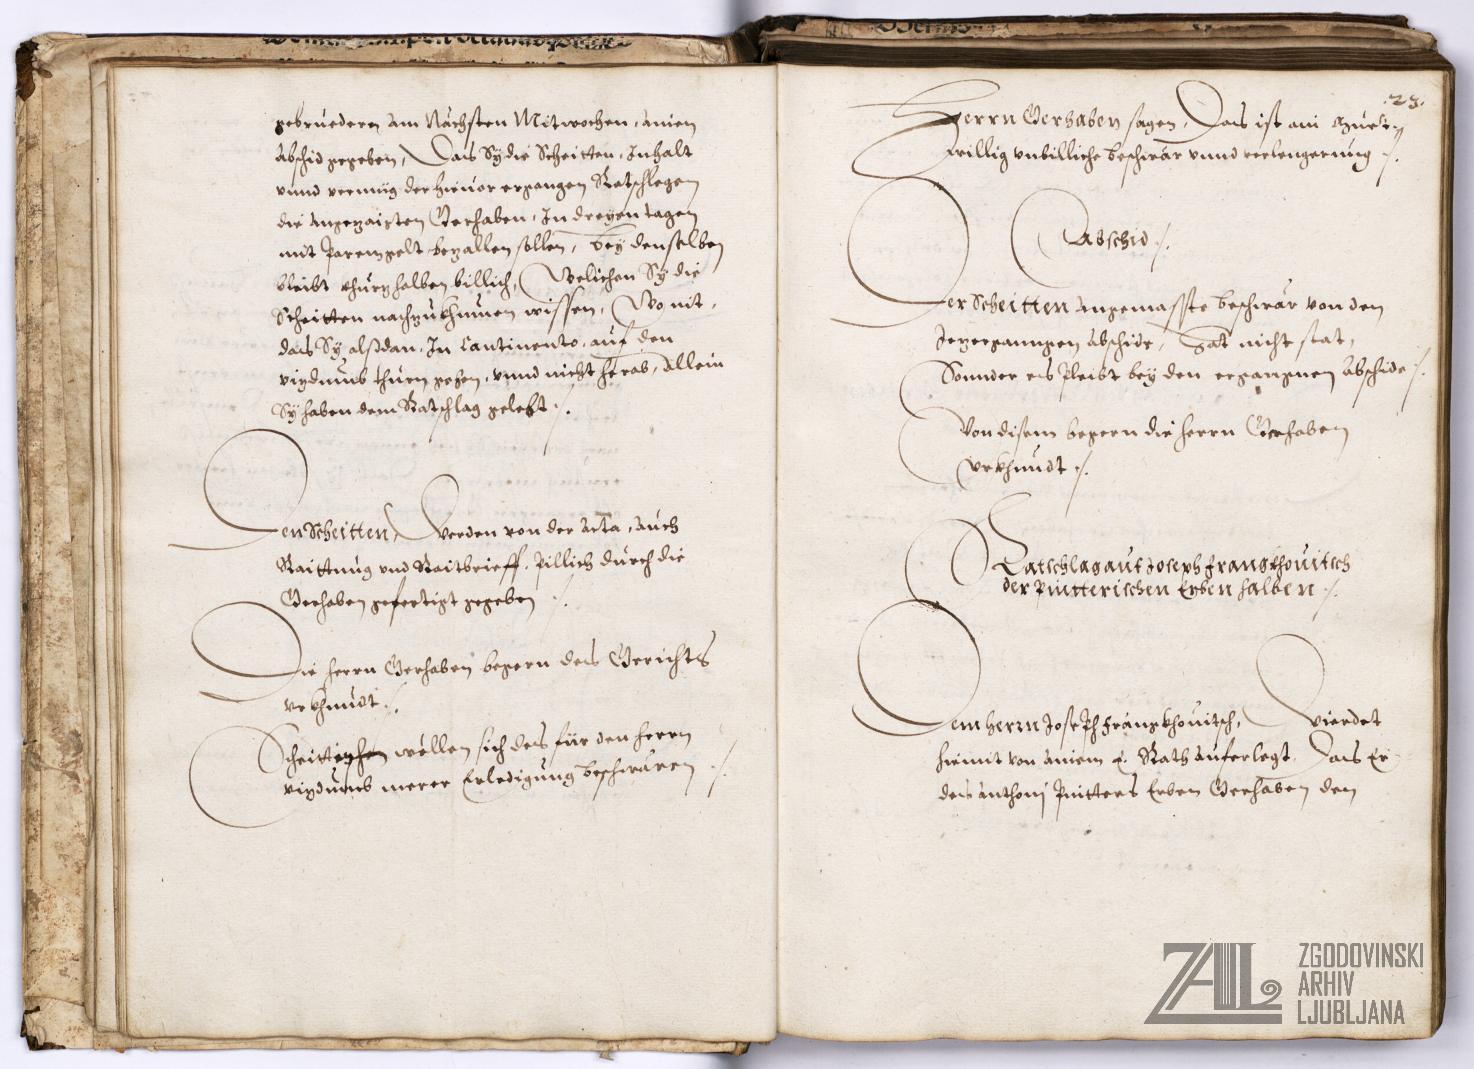 gebruedern am Nächsten Mitwochen, ainen
Abschid gegeben, Das Sy die Scheitten, Inhalt
vnnd vermüg der hieuor ergangen Ratschlegen
die angezaigten Gerhaben, In dreyen tagen
mit Paremgelt bezallen sollen, bey denselben
bleibt khürtz halben billich, Welichen Sy die
Scheitten nachzukhumen wissen, Wo nit,
das Sy alßdan, In Continento, auf den
vizdumb thurn gehen, vnnd nicht herab, Allein
Sy haben dem Ratschlag gelebt
Den Scheitten, Werden von der Acta, auch
Raittung vnd Raitbrieff, pillich durch die
Gerhaben gefertigt gegeben
Die herrn Gerhaben begern des Gerichts
vrkhundt
Scheitten wöllen sich des für den herrn
vizdumb merer Erledigung beschwären
.23.
Herrn Gerhaben sagen, Das ist ain
willig vnbilliche beschwär vnnd verlengerung
Abschid
Der Scheitten angemasste beschwär von dem
Jezergangen Abschide, hat nicht stat,
Sonnder es Pleibt bey den ergangnen Abschide
Von disem begern die herrn Gerhaben
vrkhundt
Ratschlag auf Joseph Frangkhouitsch
der Puitterischen Erben halben
Dem Herrn Joseph Frangkhouitsch, Wierdet
hiemit von ainem E. Rath auferlegt, Das Er
des Anthonj Puitters Erben Gerhaben den
ZGODOVINSKI
ARHIV
LJUBLJANA